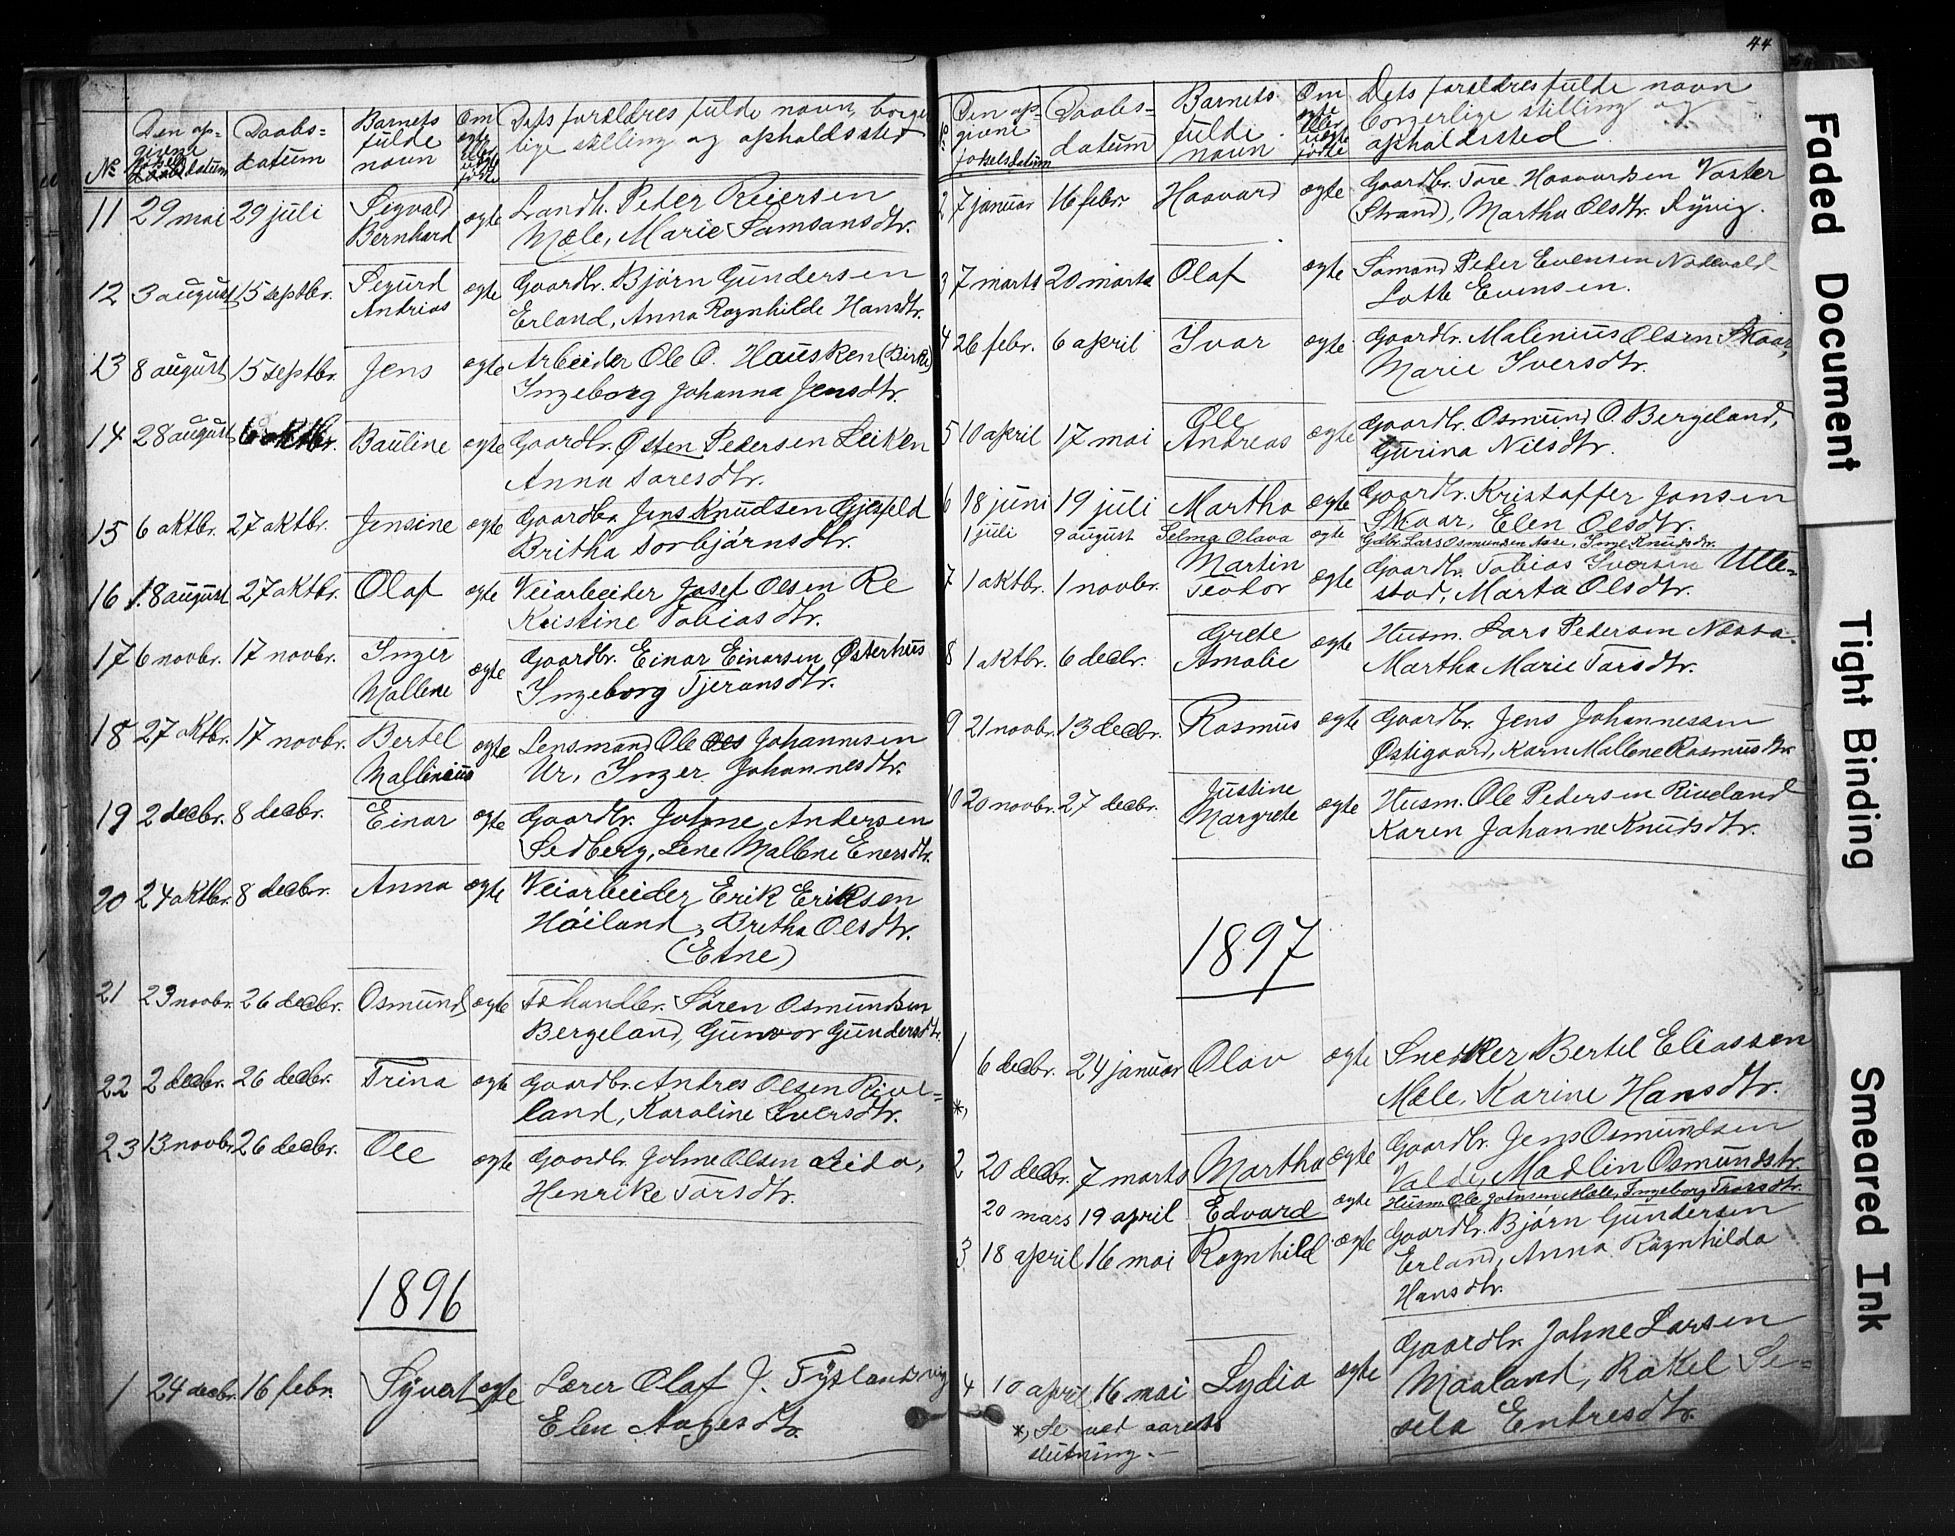 44
No Den op- Daabs- Barnets Om Dets forældres fulde navn, borger-
givne datum fulde ægte lige stilling og opholdssted
fødselsdatum navn eller uægte fødte
11 29 mai 29 juli Sigvald ægte Landh. Peter Reiersen
Bernhard Mæle, Marie Samsonsdtr.
12 3 august 15 septbr. Sigurd ægte Gaardbr. Bjørn Gundersen
Andrias Erland, Anna Ragnhilde Hansdtr.
13 8 august 15 septbr. Jens ægte Arbeider Ole O. Hausken
Ingeborg Johanna Jensdtr.
14 28 august 6 oktbr. Bauline ægte Gaardbr. Østen Pedersen Leiken
Anna Toresdtr.
15 6 oktbr. 27 oktbr. Jensine ægte Gaardbr. Jens Knudsen Gjesfeld
Britha Torbjørnsdtr.
16 18 august 27 oktbr. Olaf ægte Veiarbeider Josef Olsen Re
Kristine Tobiasdtr.
17 6 novbr. 17 novbr. Inger ægte Gaardbr. Einar Einarsen Østerhus
Mallene Ingeborg Tjeransdtr.
18 27 oktbr. 17 novbr. Bertel ægte Lensmand Ole Johannesen
Mallinius Ur, Inger Johannesdtr.
19 2 decbr. 8 decbr. Einar ægte Gaardbr. Johne Andersen
Sedberg, Lene Mallene Enersdtr.
20 24 oktbr. 8 decbr. Anna ægte Veiarbeider Erik Eriksen
Høiland, Bretha Olsdtr.
(Etne)
21 23 novbr. 26 decbr. Osmund ægte Fæhandler. Søren Osmundsen
Bergeland, Gunvor Gundersdtr.
22 2 decbr. 26 decbr. Trina ægte Gaardbr. Andres Olsen Rive-
land, Karoline Iversdtr.
23 13 novbr. 26 decbr. Ole ægte Gaardbr. Johne Olsen Leida,
Henrike Torsdtr.
1896
1 24 decbr. 16 febr. Syvert ægte Lærer Olaf J. Fyslandsvig
Elen Aagesdtr.
No Den op- Daabs- Barnets Om Dets forældres fulde navn
givne datum fulde ægte borgerlige stilling og
fødselsdatum navn eller uægte fødte opholdssted
2 7 januar 16 febr. Haavard ægte Gaardbr. Tore Haavardsen Vaster
(Strand), Martha Olsdtr. Ryvig.
3 7 marts 20 marts Olaf ægte Sømand Peder Evensen Nadevald
Lotte Evensen.
4 26 febr. 6 april Ivar ægte Gaardbr. Malenius Olsen Skaar,
Marie Iversdtr.
5 10 april 17 mai Ole ægte Gaardbr. Osmund O. Bergeland,
Andreas Gurina Nilsdtr.
6 18 juni 19 juli Martha ægte Gaardbr. Kristoffer Jonsen
Skaar, Elen Olsdtr.
1 juli 9 august Selma Olava ægte Gdbr. Lars Osmundsen Aase, Inge Knutsdtr.
7 1 oktbr. 1 novbr. Martin ægte Gaardbr. Tobias Iversen Ulle-
Teodor stad, Marta Olsdtr.
8 1 oktbr. 6 decbr. Grete ægte Husm. Lars Pedersen Næssa.
Amalie Martha Marie Torsdtr.
9 21 novbr. 13 decbr. Rasmus ægte Gaardbr. Jens Johannessen
Østigaard, Karn Mallene Rasmusdtr.
10 20 novbr. 27 decbr. Justine ægte Husm. Ole Pedersen Riveland
Margrete Karen Johanne Knudsdtr.
1897
1 6 decbr. 24 januar Olav ægte Snedker Bertel Eliassen
*) Mæle, Karine Hansdtr.
2 20 decbr. 7 marts Martha ægte Gaardbr. Jens Osmundsen
Valde, Madlin Osmundsdtr.
20 mars 19 april Edvard ægte Husm. Ole Johnsen Mæle, Ingeborg Torsdtr.
3 18 april 16 mai Ragnhild ægte Gaardbr. Bjørn Gundersen
Erland, Anna Ragnhilda
Hansdtr.
4 10 april 16 mai Lydia ægte Gaardbr. Johne Larsen
Maaland, Rakel Se-
sela Endresdtr.
*) Se ved aarets
slutning.
Faded Document
Tight Binding
Smeared Ink